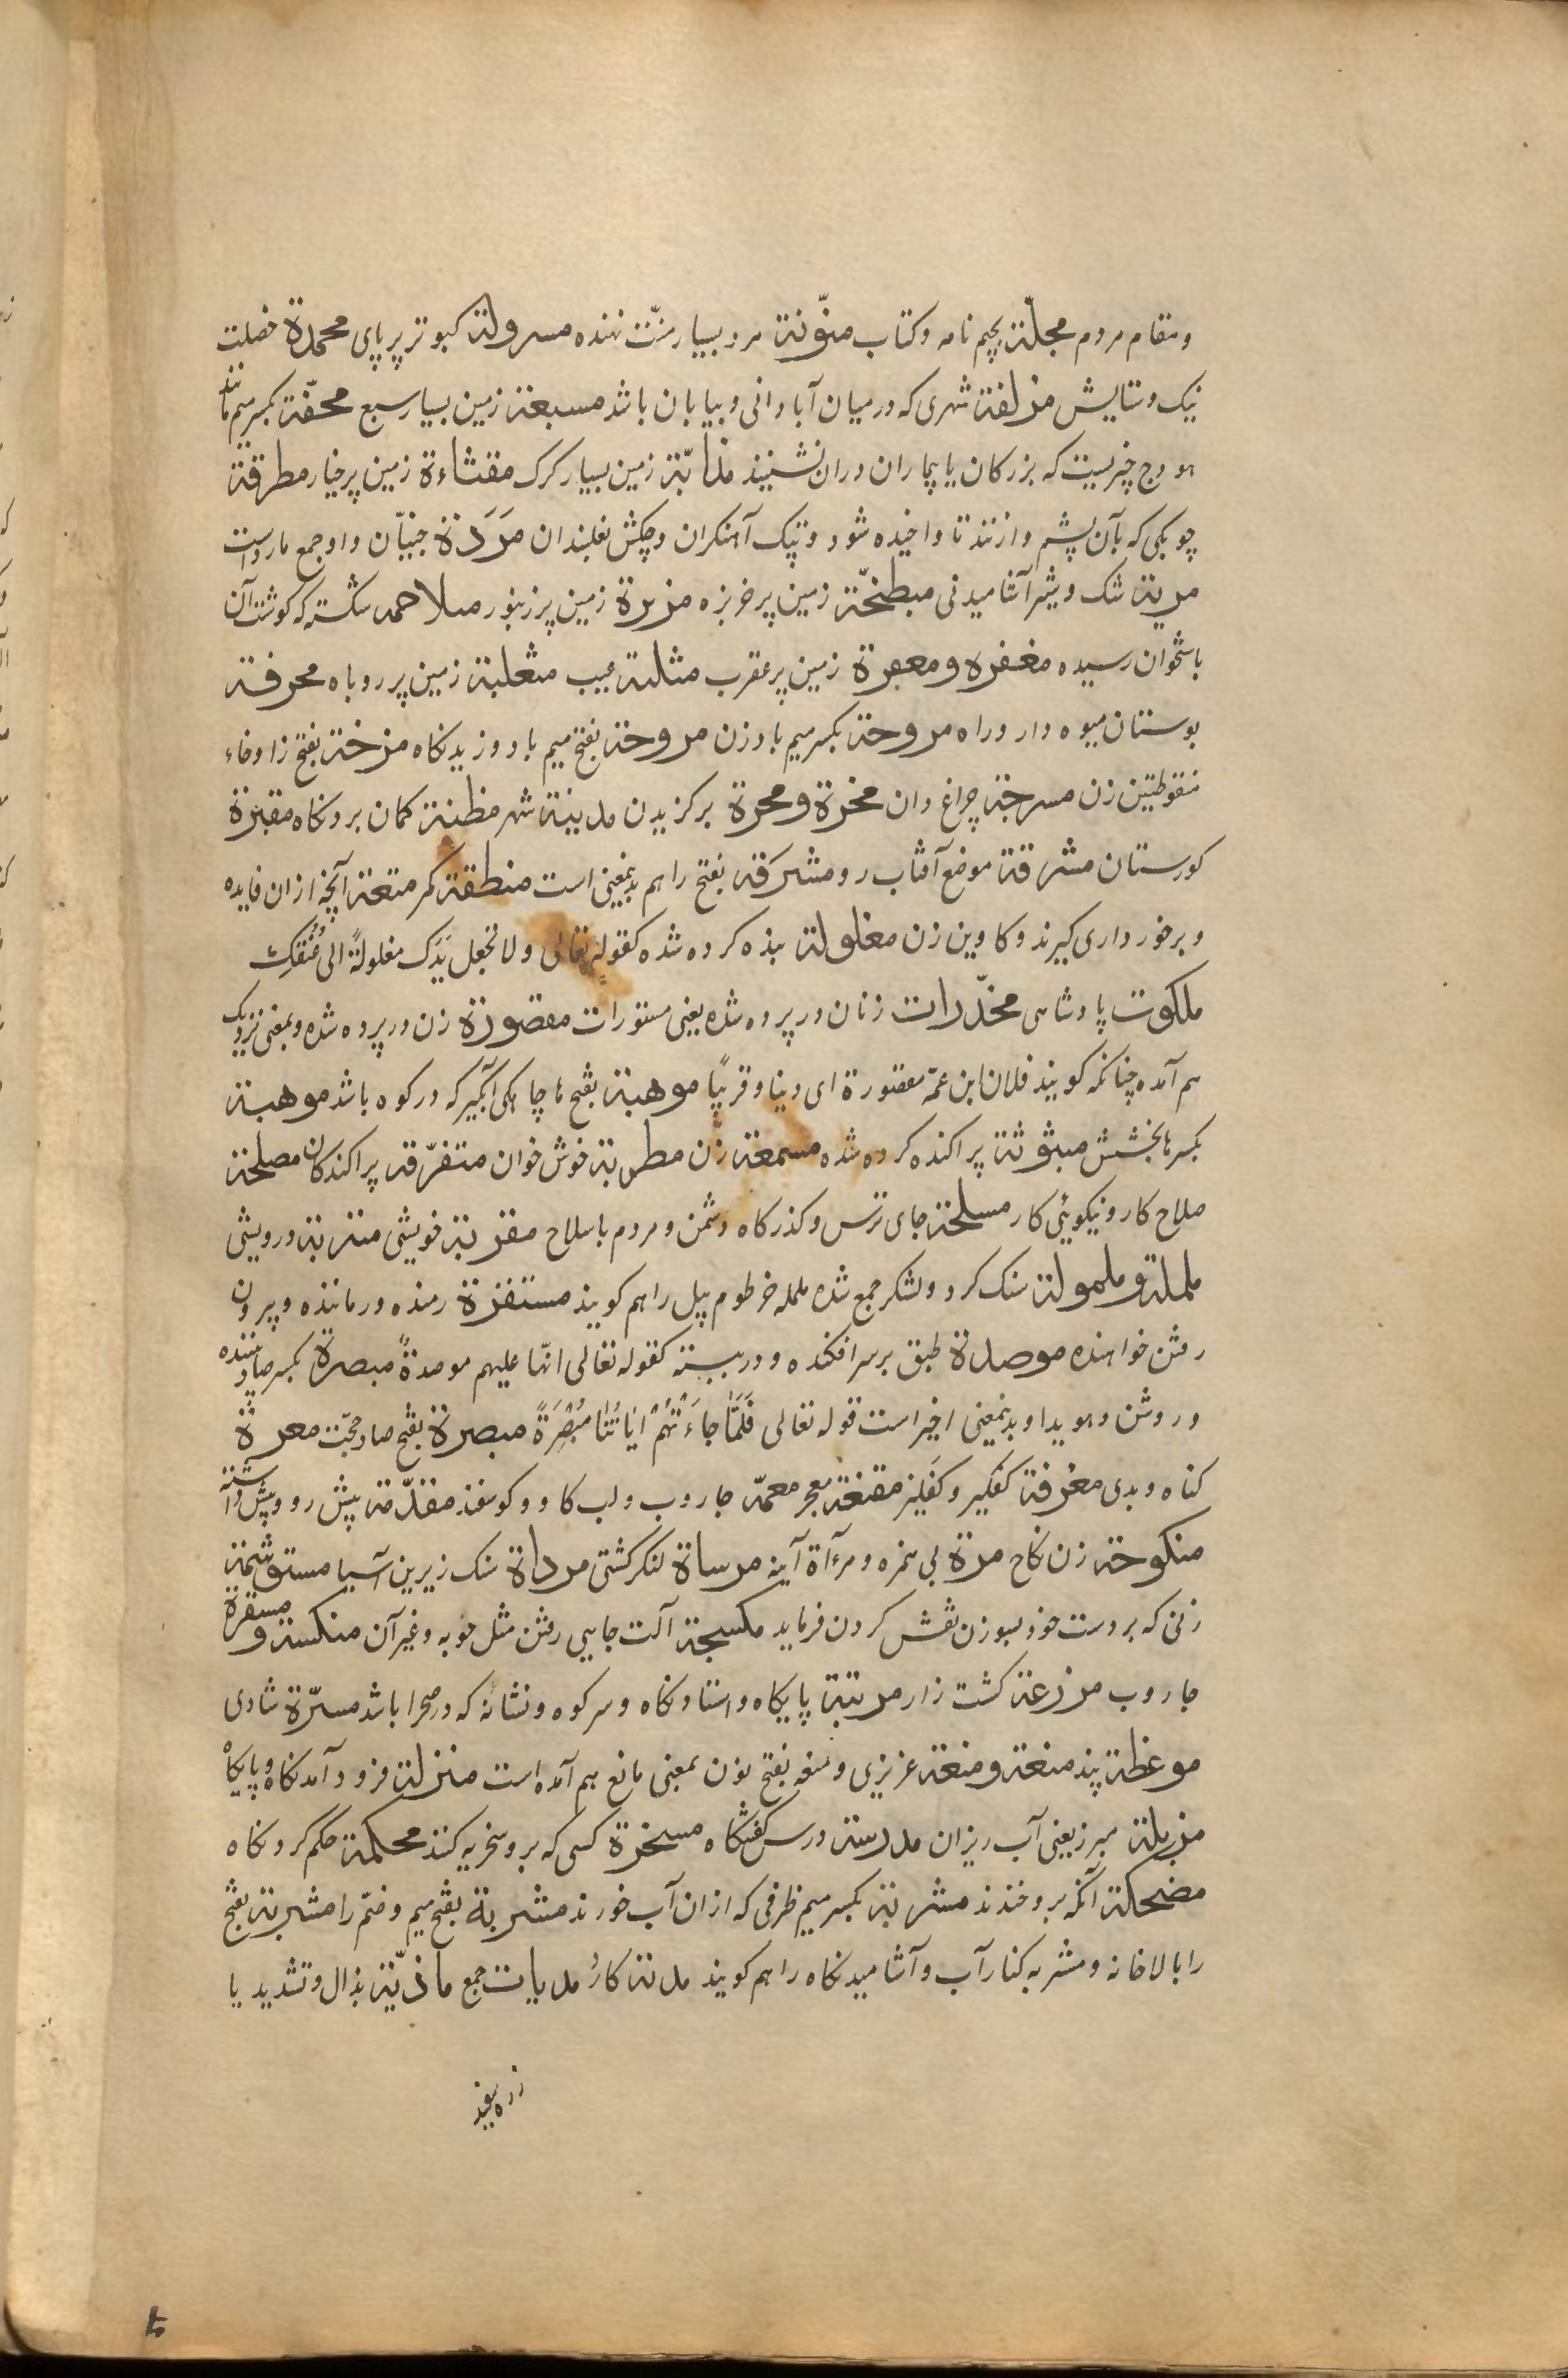 ومقام مردم مجلّة بجیم نامه وکتاب منّونة مرد بسیار منّت نهنده مسرولة کبوتر پر پای محمدة خصلت
نیک و ستایش مزلفة شهری که در میان آبادانی و بیابان باشد مسبعة زمین بسیار سبع محفّة بکسر میم مانند
هودج چیزیست که بزرکان یا بیماران دران نشینند مذابّة زمین بسیار کرک مقثاءة زمین پر خیار مطرقة
چوبکی که بآن پشم وازنند تا واخیده شود و پتک آهنکران و چکش نعلبندان مَرَدة جنیّان واو جمع ماردست
مریة شک و شیر آشامیدنی مبطخّة زمین پر خربزه مزبرة زمین پر زنبور ملاحمه شکسته که کوشت آن
باستخوان رسیده مغفره و معبرة زمین پر عقرب مثلبة عیب مثعلبة زمین پر روباه محرفة
بوستان میوه دار و راه مروحة بکسر میم بادزن مروحة بفتح میم باد وزیدنکاه مزخة بفتح زا و خاء
منقوطتین زن مسرجة چراغ دان مخرة و محرة برکزیدن مدینة شهر مظنة کمان بردنکاه مقبرة
کورستان مشرقة موضع آفتاب رو مشرَقة بفتح را هم بدینمعنی است منطقة کمر متعة آنچه ازان فایده
و برخورداری کیرند و کاوین زن مغلولة بنده کرده شده کقوله تعالی ولا تجعل یَدَک مغلولةً الی عُنُقِکَ
ملکوت پادشاهی مخدّرات زنان در پرده شده یعنی مستورات مقصورة زن در پرده شده و بمعنی نزدیک
هم آمده چنانکه کویند فلان ابن عمّه مقصورة ای دنیا و قریبًا موهبة بفتح ها چاهکی آبکیر که در کوه باشد موهبة
بکسر ها بخشش مبثوثة پراکنده کرده شده مسمعة زن مطربة خوش خوان متفرّقة پراکندکان مصلحة
صلاح کار و نیکویئ کار مسلحة جای ترس و کذرکاه دشمن و مردم با سلاح مقربة خویشی متربة درویشی
ململة و ململولة سنک کرد و لشکر جمع شده ململه خرطوم پیل را هم کویند مستنفرة رمنده و رماننده و بیرون
رفتن خواهنده موصدة طبق بر سر افکنده و در بسته کقوله تعالی انّها علیهم موصدةٌ مبصرة بکسر صاد بیننده
و روشن و هویدا و بدینمعنی اخیر است قوله تعالی فَلَمَّا جاءَتْهُمْ ایَاتُنَا مُبْصِرَةً مبصرة بفتح صاد حجّت معرة
کناه و بدی مغرفة کفکیر و کفَلیز مقنعة معجر معمّة جاروب و لب کاو و کوسفند مقدّمة پیش رو و پیش داشته
منکوحة زن نکاح مرة بی همزه و مرءآة آینه مرساة لنکر کشتی مرداة سنک زیرین آسیا مستوشمة
زنی که بر دست خود بسوزن نقش کردن فرماید مکسحة آلت جایی رفتن مثل خوبه و غیر آن منکسة و مسفرة
جاروب مزرعة کشت زار مرتبة پایکاه و استادنکاه و سر کوه و نشانه که در صحرا باشد مسرّة شادی
موعظة پند منعة و منعة عزیزی و منعه بفتح نون بمعنی مانع هم آمده است منزلة فرود آمدنکاه و پایکاه
مزبلة مبرز یعنی آب ریزان مدرسة درس کفتنکاه مسخرة کسی که برو سخریه کنند محکمة حکم کردنکاه
مضحکة آنکه برو خندند مشربة بکسر میم ظرفی که ازان آب خورند مشربة بفتح میم و ضمّ را مشربة بفتح
را بالاخانه و مشربه کنار آب و آشامیدنکاه را هم کویند مدیة کارد مدیات جمع ماذیّة بذال و تشدید یا
زره سفید